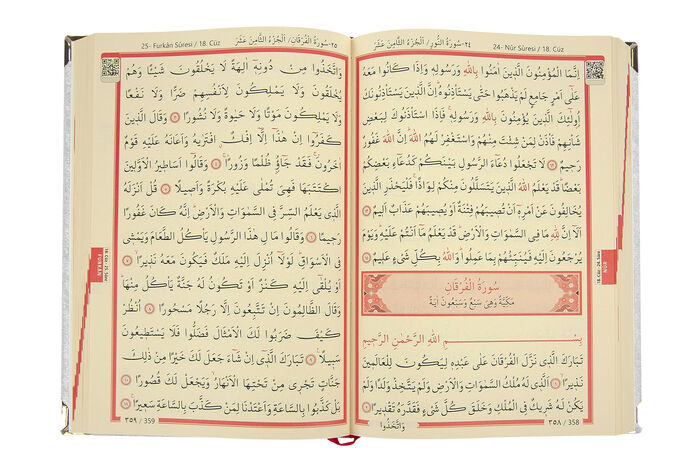 ٢٤-سُورَةُ النُّورِ / اَلْجُزْءُ الثَّامِنَ عَشَرَ 24- Nûr Sûresi / 18. Cüz
اِنَّمَا الْمُؤْمِنُونَ الَّذينَ اٰمَنُوا بِاللّٰهِ وَرَسُولِه۪ وَاِذَا كَانُوا مَعَهُ
عَلٰٓى اَمْرٍ جَامِعٍ لَمْ يَذْهَبُوا حَتّٰى يَسْتَأْذِنُوهُۜ اِنَّ الَّذ۪ينَ يَسْتَأْذِنُونَكَ
اُو۬لٰٓئِكَ الَّذ۪ينَ يُؤْمِنُونَ بِاللّٰهِ وَرَسُولِه۪ۚ فَاِذَا اسْتَأْذَنُوكَ لِبَعْضِ
شَأْنِهِمْ فَأْذَنْ لِمَنْ شِئْتَ مِنْهُمْ وَاسْتَغْفِرْ لَهُمُ اللّٰهَۜ اِنَّ اللّٰهَ غَفُورٌ
رَح۪يمٌ ۝ لَا تَجْعَلُوا دُعَٓاءَ الرَّسُولِ بَيْنَكُمْ كَدُعَٓاءِ بَعْضِكُمْ
بَعْضًاۜ قَدْ يَعْلَمُ اللّٰهُ الَّذ۪ينَ يَتَسَلَّلُونَ مِنْكُمْ لِوَاذًاۚ فَلْيَحْذَرِ الَّذ۪ينَ
يُخَالِفُونَ عَنْ اَمْرِه۪ٓ اَنْ تُص۪يبَهُمْ فِتْنَةٌ اَوْ يُص۪يبَهُمْ عَذَابٌ اَل۪يمٌ ۝
اَلَٓا اِنَّ لِلّٰهِ مَا فِي السَّمٰوَاتِ وَالْاَرْضِۜ قَدْ يَعْلَمُ مَٓا اَنْتُمْ عَلَيْهِۜ وَيَوْمَ
يُرْجَعُونَ اِلَيْهِ فَيُنَبِّئُهُمْ بِمَا عَمِلُواۜ وَاللّٰهُ بِكُلِّ شَيْءٍ عَل۪يمٌ ۝
سُورَةُ الْفُرْقَانِ
مَكِّيَّةٌ وَهِيَ سَبْعٌ وَسَبْعُونَ اٰيَةً
بِسْمِ اللّٰهِ الرَّحْمٰنِ الرَّح۪يمِ
تَبَارَكَ الَّذ۪ي نَزَّلَ الْفُرْقَانَ عَلٰى عَبْدِه۪ لِيَكُونَ لِلْعَالَم۪ينَ
نَذ۪يرًاۙ ۝ اَلَّذ۪ي لَهُ مُلْكُ السَّمٰوَاتِ وَالْاَرْضِ وَلَمْ يَتَّخِذْ وَلَدًا وَلَمْ
يَكُنْ لَهُ شَر۪يكٌ فِي الْمُلْكِ وَخَلَقَ كُلَّ شَيْءٍ فَقَدَّرَهُ تَقْد۪يرًا ۝
وَاتَّخَذُوا
٣٥٨ / 358
NÛR
18. Cüz - 24. Sûre
25- Furkân Sûresi / 18. Cüz ٢٥-سُورَةُ الْفُرْقَانِ / اَلْجُزْءُ الثَّامِنَ عَشَرَ
وَاتَّخَذُوا مِنْ دُونِه۪ٓ اٰلِهَةً لَا يَخْلُقُونَ شَيْـًٔا وَهُمْ
يُخْلَقُونَ وَلَا يَمْلِكُونَ لِاَنْفُسِهِمْ ضَرًّا وَلَا نَفْعًا
وَلَا يَمْلِكُونَ مَوْتًا وَلَا حَيٰوةً وَلَا نُشُورًا ۝ وَقَالَ الَّذ۪ينَ
كَفَرُٓوا اِنْ هٰذَٓا اِلَّٓا اِفْكٌۨ افْتَرٰيهُ وَاَعَانَهُ عَلَيْهِ قَوْمٌ
اٰخَرُونَۚ فَقَدْ جَٓاؤُ۫ ظُلْمًا وَزُورًاۚ ۝ وَقَالُٓوا اَسَاط۪يرُ الْاَوَّل۪ينَ
اكْتَتَبَهَا فَهِيَ تُمْلٰى عَلَيْهِ بُكْرَةً وَاَص۪يلًا ۝ قُلْ اَنْزَلَهُ
الَّذ۪ي يَعْلَمُ السِّرَّ فِي السَّمٰوَاتِ وَالْاَرْضِۜ اِنَّهُ كَانَ غَفُورًا
رَح۪يمًا ۝ وَقَالُوا مَالِ هٰذَا الرَّسُولِ يَأْكُلُ الطَّعَامَ وَيَمْش۪ي
فِي الْاَسْوَاقِۜ لَوْلَٓا اُنْزِلَ اِلَيْهِ مَلَكٌ فَيَكُونَ مَعَهُ نَذ۪يرًاۙ ۝
اَوْ يُلْقٰٓى اِلَيْهِ كَنْزٌ اَوْ تَكُونُ لَهُ جَنَّةٌ يَأْكُلُ مِنْهَاۜ
وَقَالَ الظَّالِمُونَ اِنْ تَتَّبِعُونَ اِلَّا رَجُلًا مَسْحُورًا ۝ اُنْظُرْ
كَيْفَ ضَرَبُوا لَكَ الْاَمْثَالَ فَضَلُّوا فَلَا يَسْتَط۪يعُونَ
سَب۪يلًا۟ ۝ تَبَارَكَ الَّذ۪ٓي اِنْ شَٓاءَ جَعَلَ لَكَ خَيْرًا مِنْ ذٰلِكَ
جَنَّاتٍ تَجْر۪ي مِنْ تَحْتِهَا الْاَنْهَارُۙ وَيَجْعَلْ لَكَ قُصُورًا ۝
بَلْ كَذَّبُوا بِالسَّاعَةِ وَاَعْتَدْنَا لِمَنْ كَذَّبَ بِالسَّاعَةِ سَع۪يرًاۚ ۝
٣٥٩ / 359
FURKÂN
18. Cüz - 25. Sûre